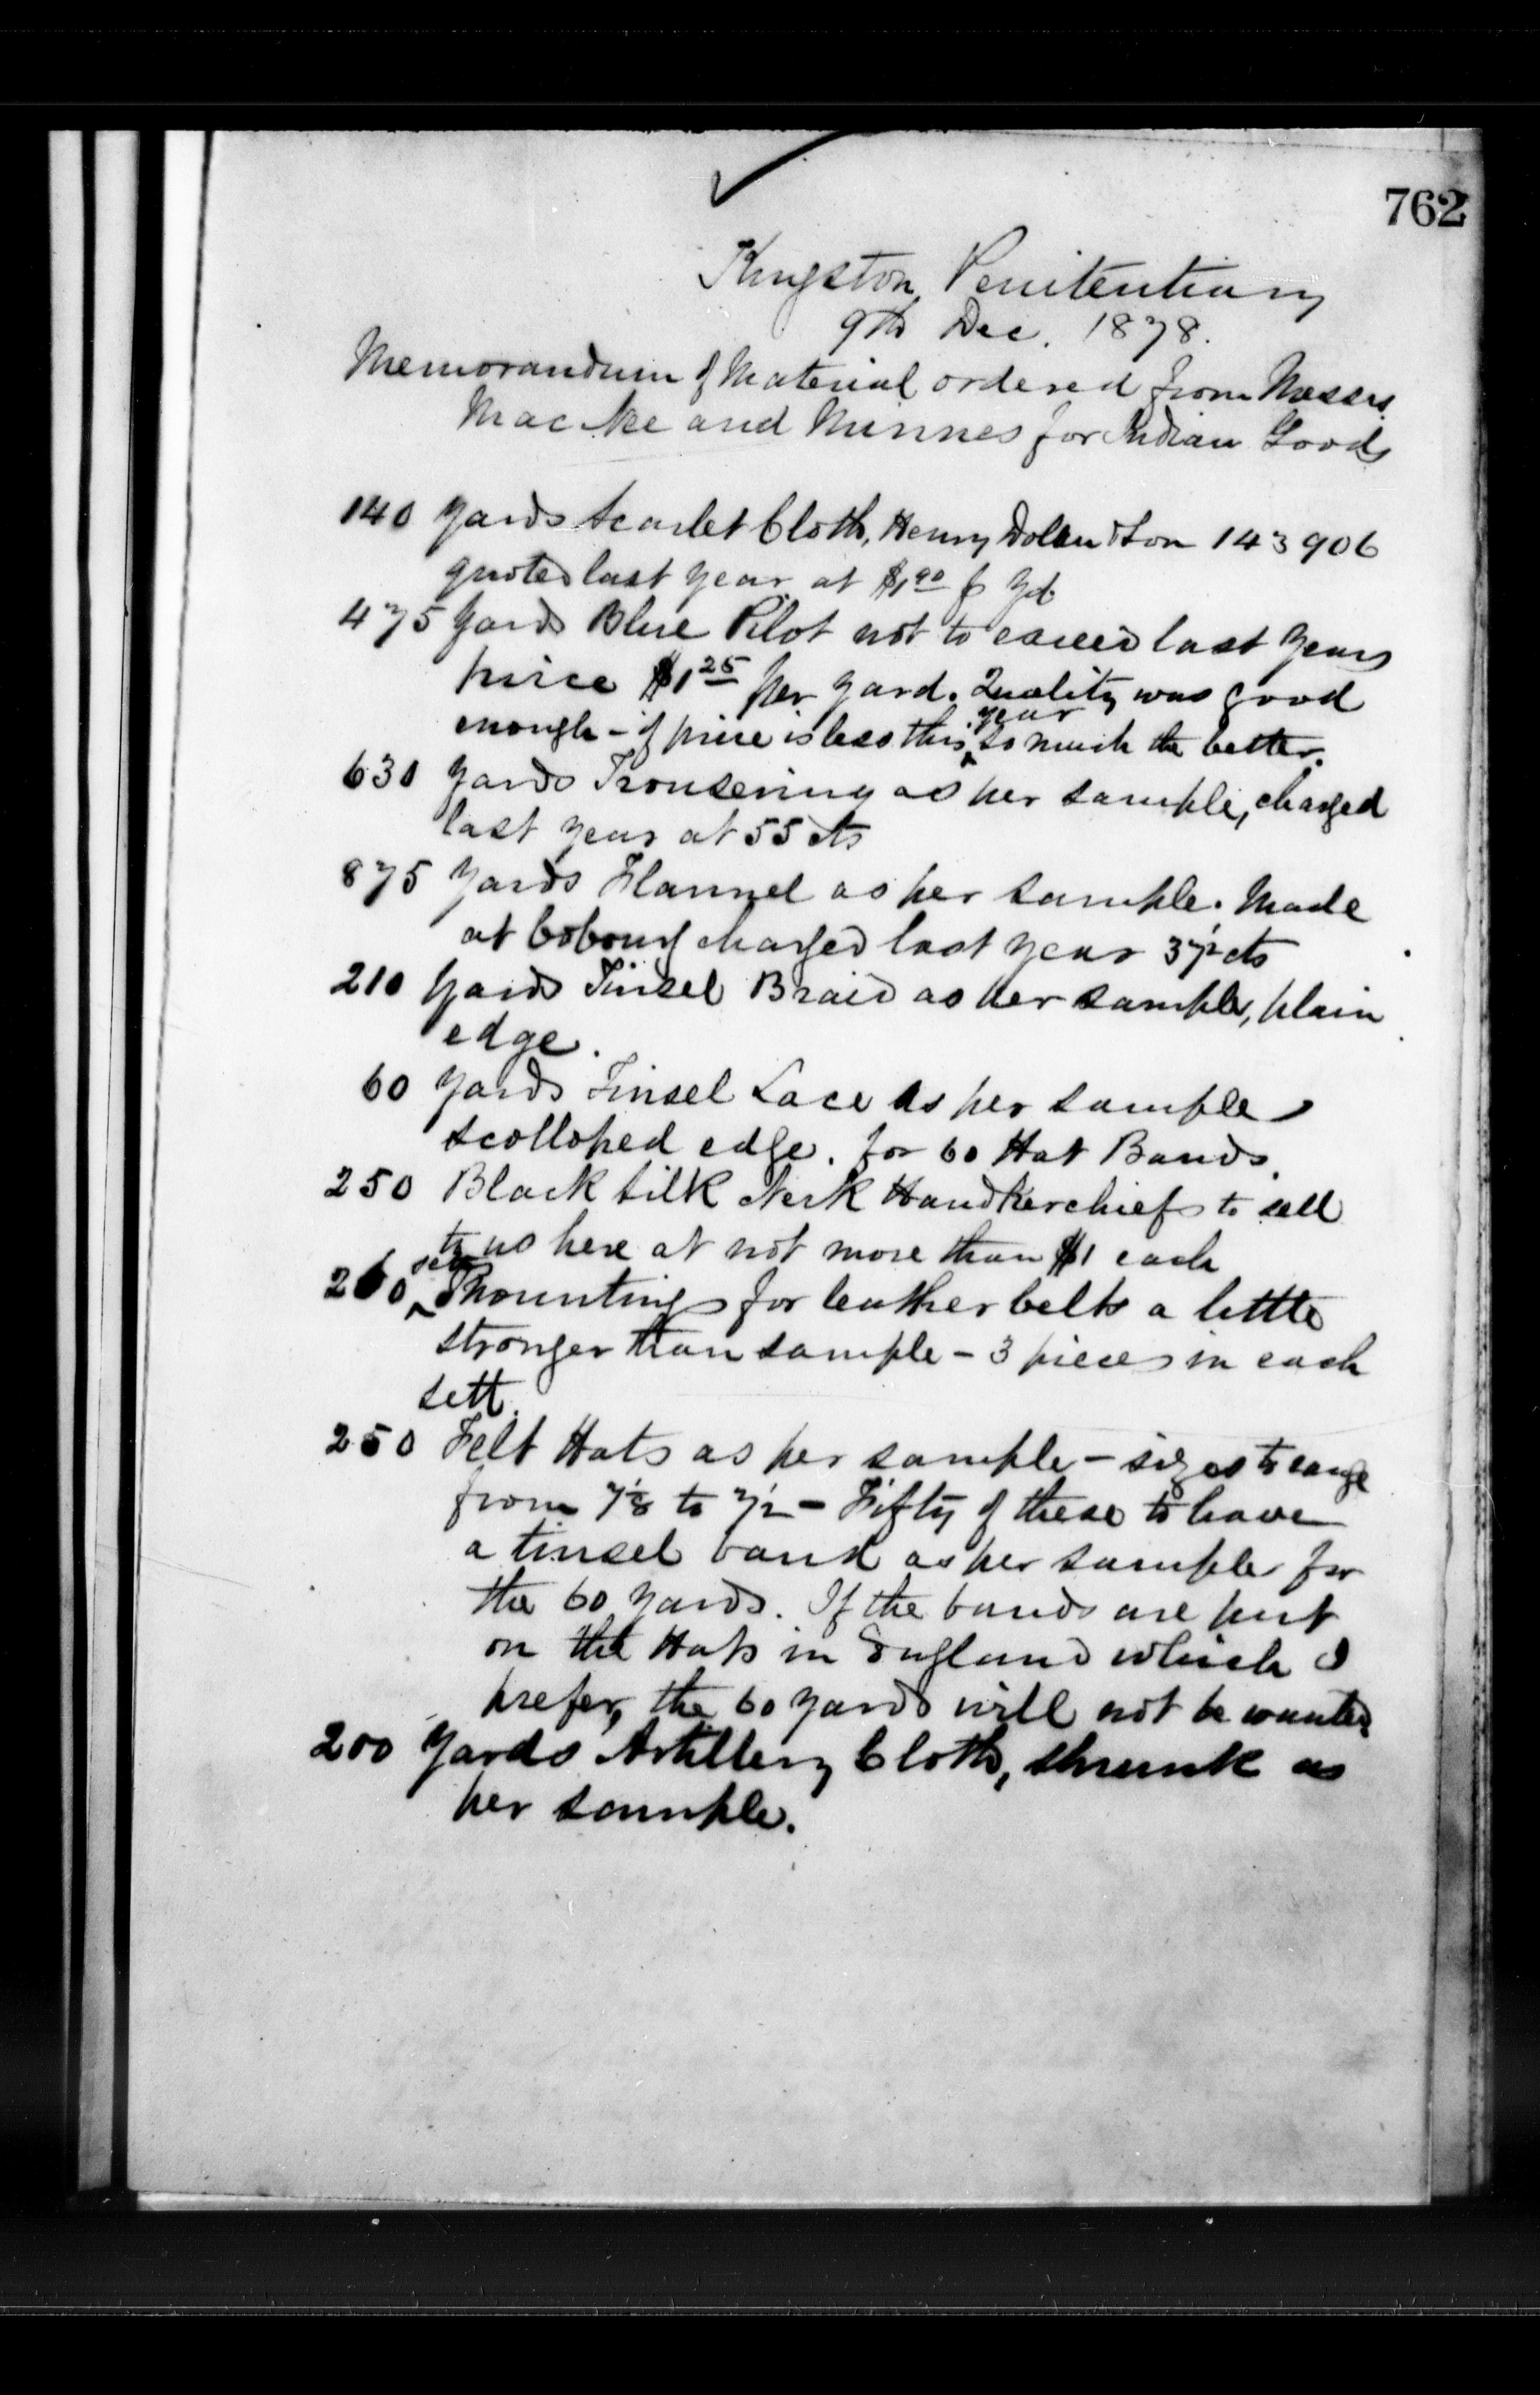 762
Kingston Penitentiary
9th Dec. 1878.
Memorandum of Material ordered from Messrs.
MacNee and Minnes for Indian Goods
140 Yards Scarlet Cloth, Henry & Son 143906
quoted last year at $1.90 p Yd
475 Yards Blue Pilot not to exceed last Years
price $1 25 per Yard. Quality was good
enough - if price is less this year so much the better.
630 Yards Trousering as per sample, charged
last year at 55 cts
875 Yards Flannel as per sample. Made
at Cobourg charged last year 37½ cts
210 Yards Tinsel Braid as per sample, plain
edge.
60 Yards Tinsel Lace as per sample
scolloped edge. for 60 Hat Bands.
250 Black Silk Neck Handkerchiefs to sell
to us here at not more than $1 each
260 setts Mountings for leather belts a little
stronger than sample - 3 pieces in each
sett.
250 Felt Hats as per sample - sizes to range
from 7⅛ to 7½ - Fifty of these to have
a tinsel band as per sample for
the 60 yards. If the bands are put
on the Hats in England which I
prefer, the 60 yards will not be wanted
200 Yards Artillery Cloth, shrunk as
per sample.